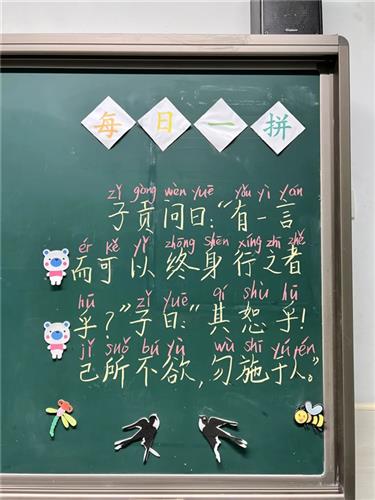 每日一拼
zǐ gòng wèn yuē yǒu yì yán
子贡问曰:“有一言
ér kě yǐ zhōng shēn xíng zhī zhě
而可以终身行之者
hū zǐ yuē qí shù hū
乎?”子曰:“其恕乎!
jǐ suǒ bú yù wù shī yú rén
己所不欲,勿施于人。”